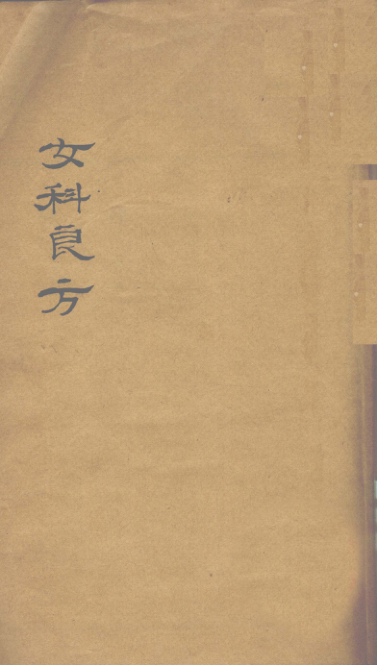 女科良方